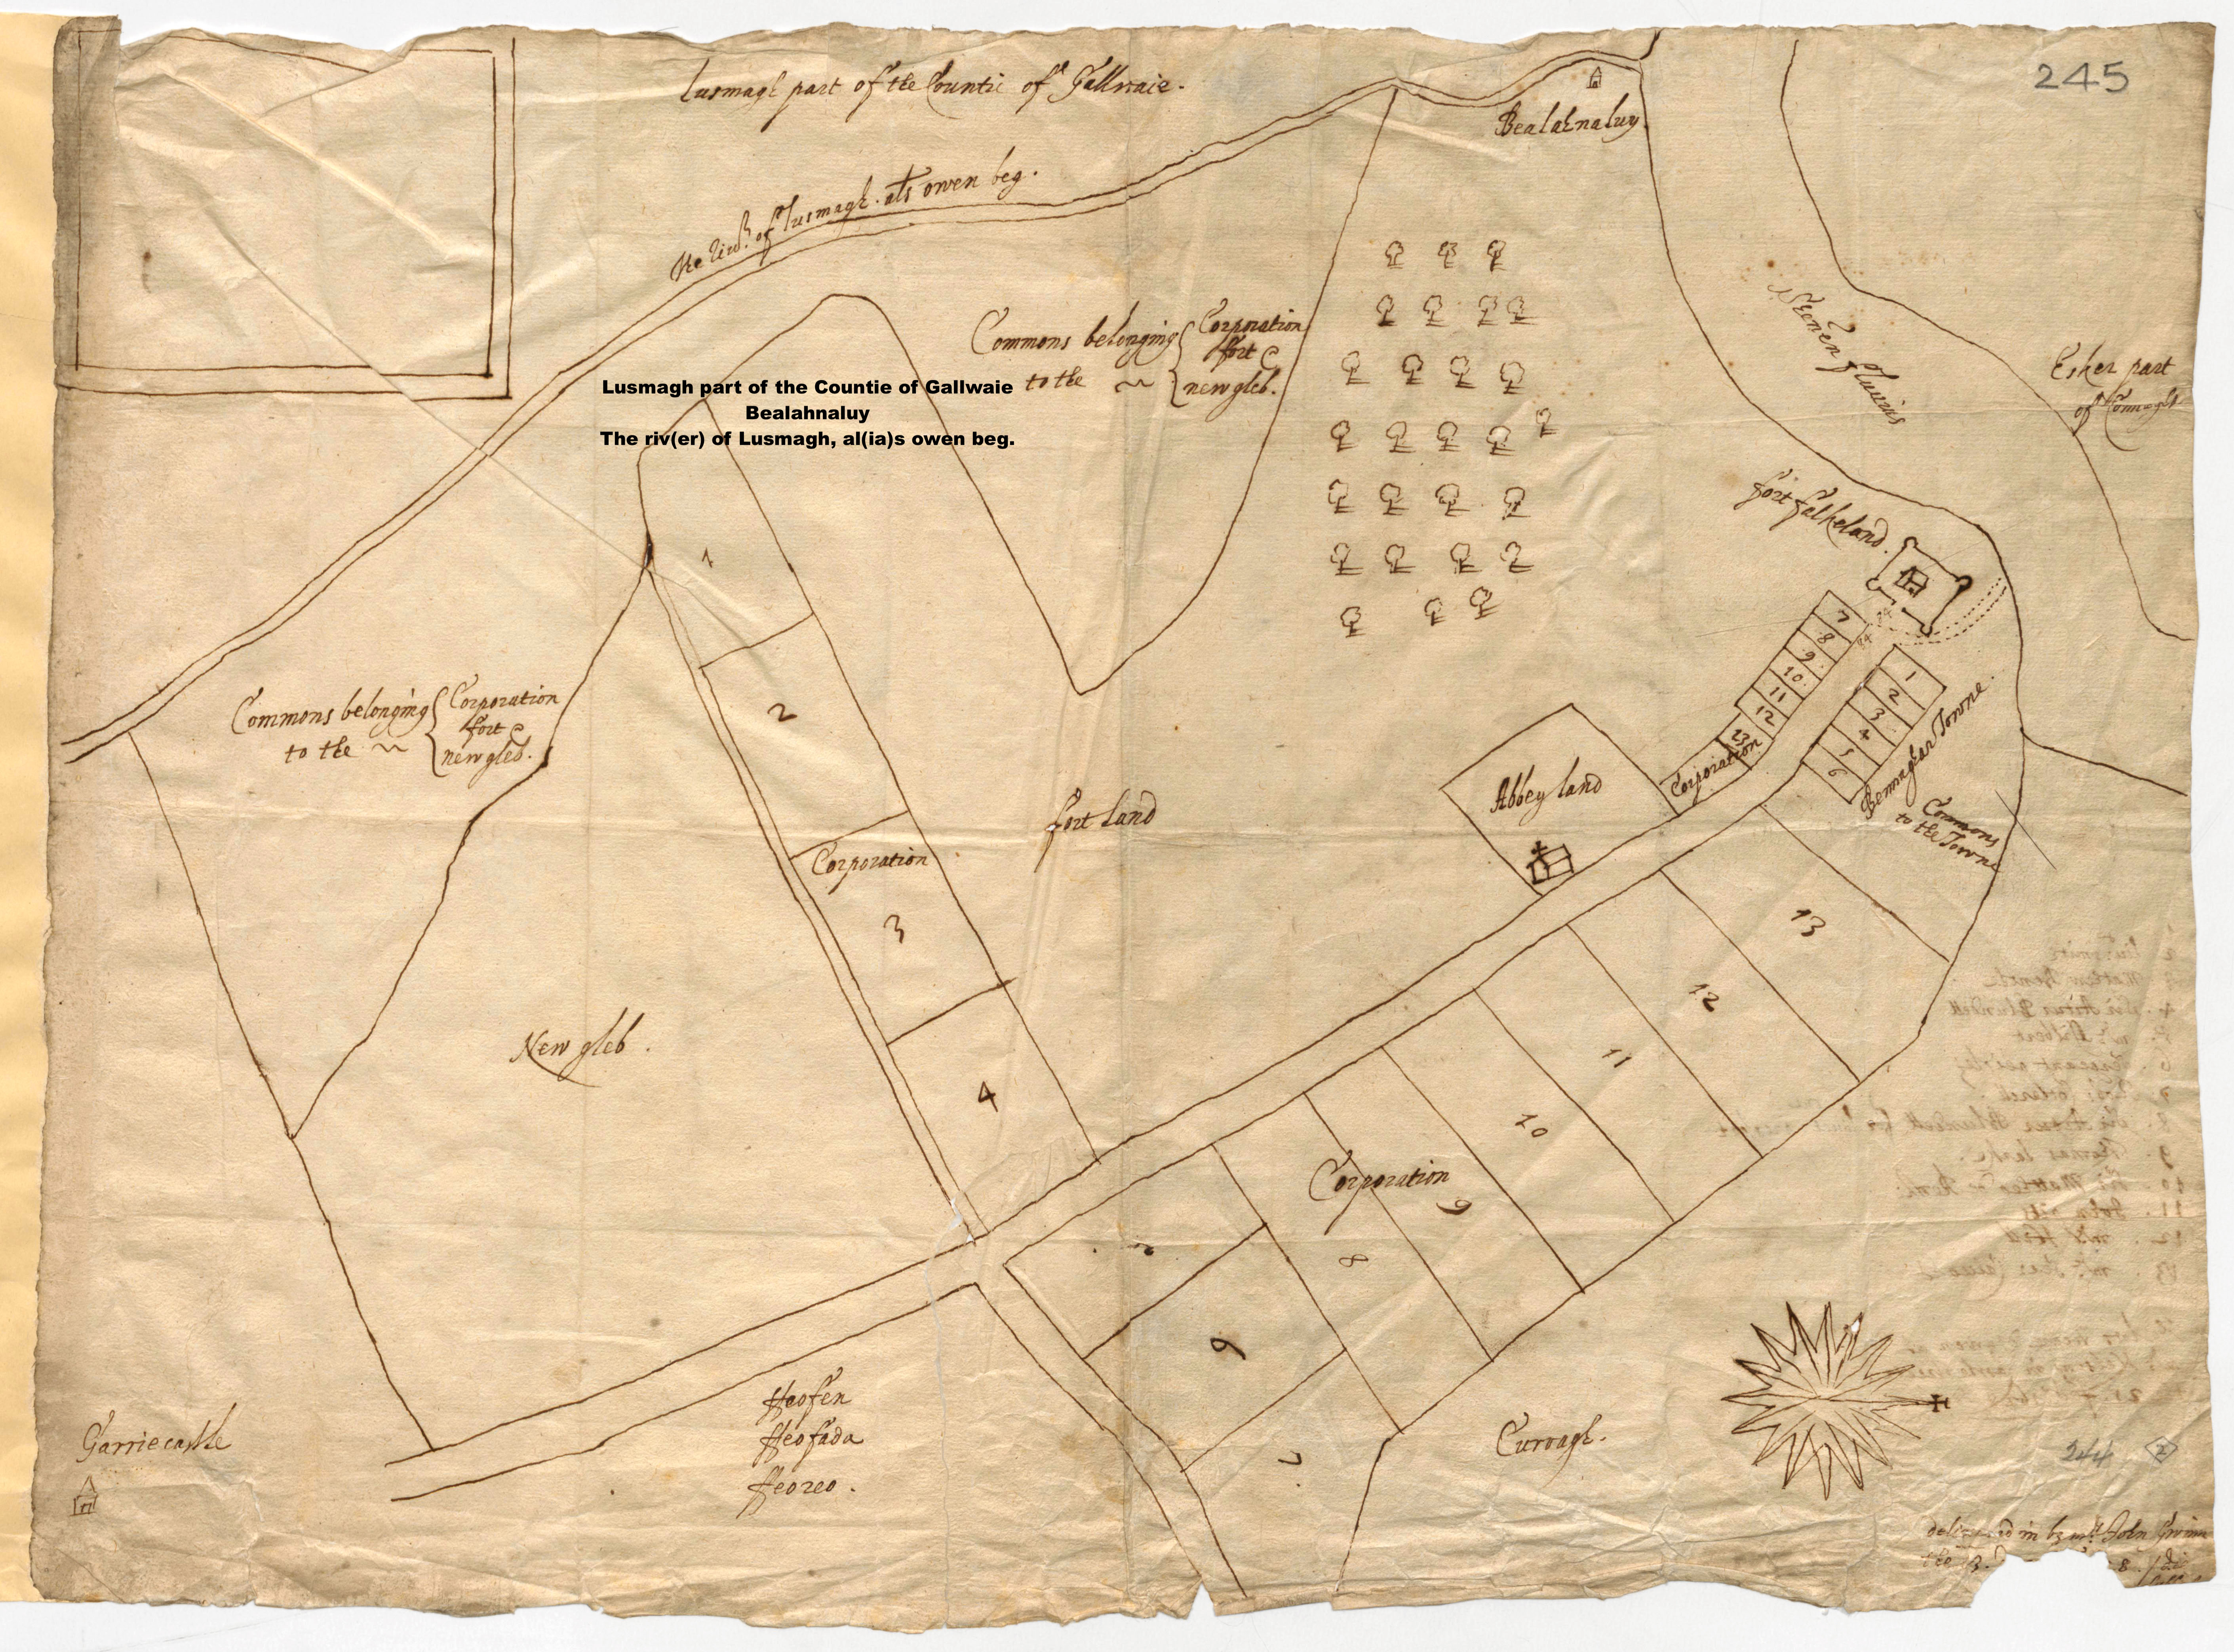 245
Lusmagh part of the Countie of Gallwaie.
Bealahnaluy
The Rivr. of Lusmagh. als owen beg.
Commons belonging
to the
Corporation
fort
newgleb.
Lusmagh part of the Countie of Gallwaie
Bealahnaluy
The riv(er) of Lusmagh, al(ia)s owen beg.
Shenen fluvis
Esker part
of Connaght
fort falkeland.
7
8
9
10
11
12
13
Corporation
1
2
3
4
5
6
Bennaghar Towne.
Commons
to the Towne
Abbey land
1
2
Corporation
3
4
fort land
Commons belonging
to the
Corporation
fort
newgleb.
New gleb.
13
12
11
10
9
Corporation
8
6
7
Garriecastle
ffeofen
ffeofada
ffeoreo.
Curragh.
244
2
in by mr John Gwinn